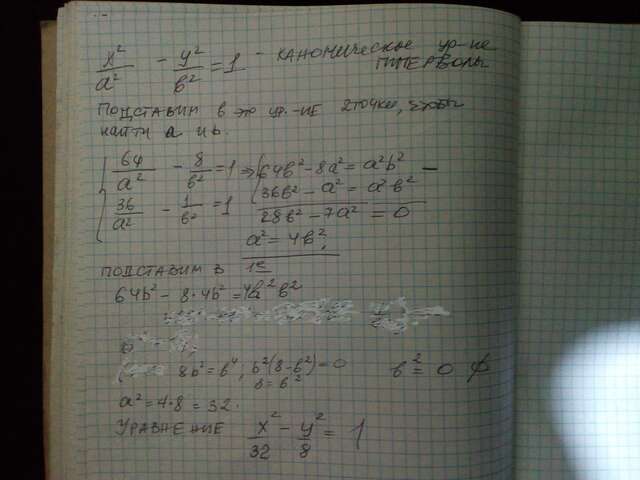 x²/a² - y²/b² = 1 - КАНОНИЧЕСКОЕ ур-ие ГИПЕРБОЛЫ
ПОДСТАВИМ в это ур.-ие 2 точки, чтобы
найти a и b.
64/a² - 8/b² = 1 ⇒ 64b² - 8a² = a²b² —
36/a² - 1/b² = 1 36b² - a² = a²b²
28b² - 7a² = 0
a² = 4b²;
ПОДСТАВИМ В 1е
64b² - 8·4b² = 4b²b²
8b² = b⁴; b²(8-b²) = 0 b² = 0 ∅
8 = b²
a² = 4·8 = 32.
УРАВНЕНИЕ x²/32 - y²/8 = 1